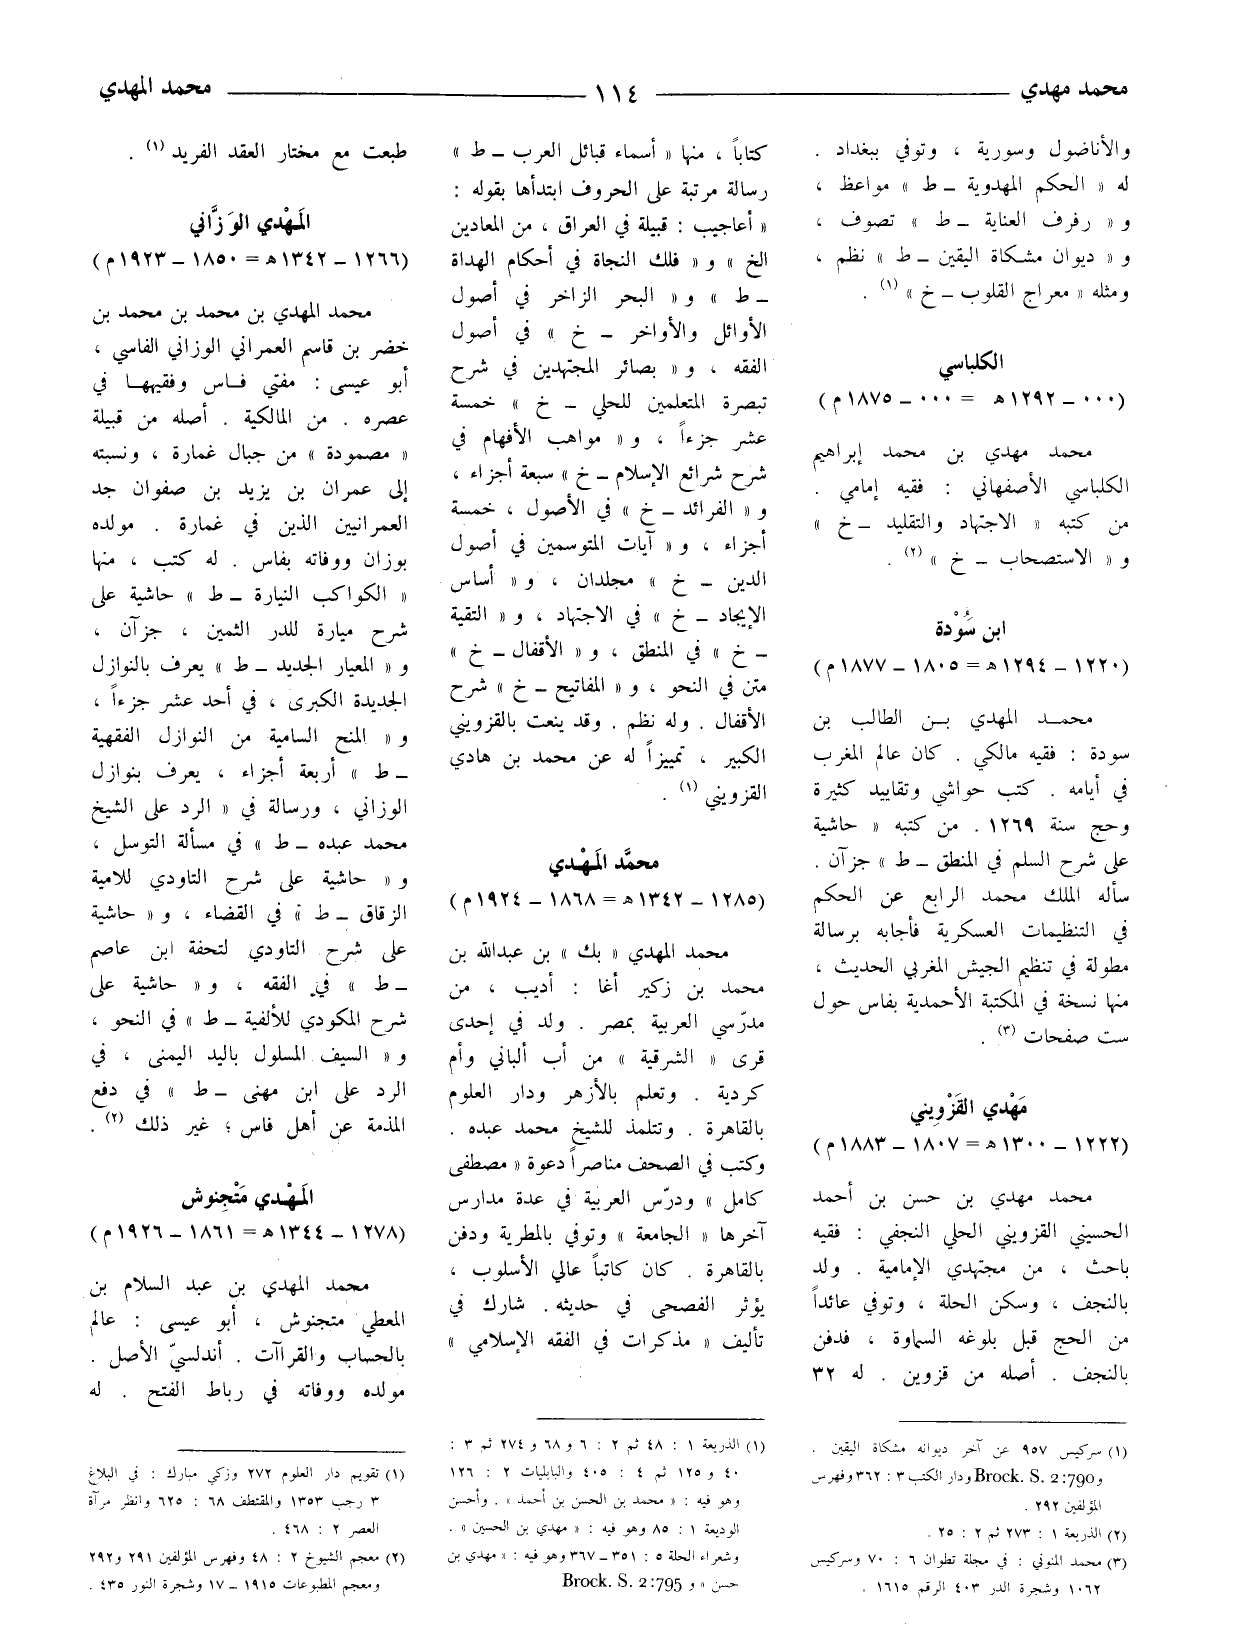 محمد مهدي ــــــ ١١٤ ــــــ محمد المهدي
والأناضول وسورية ، وتوفي ببغداد .
له « الحكم المهدوية ـ ط » مواعظ ،
و « رفرف العناية ـ ط » تصوف ،
و « ديوان مشكاة اليقين ـ ط » نظم ،
ومثله « معراج القلوب ـ خ » (١) .
الكلباسي
(٠٠٠ ـ ١٢٩٢ه = ٠٠٠ ـ ١٨٧٥م)
محمد مهدي بن محمد إبراهيم
الكلباسي الأصفهاني : فقيه إمامي .
من كتبه « الاجتهاد والتقليد ـ خ »
و « الاستصحاب ـ خ » (٢) .
ابن سُوْدة
(١٢٢٠ ـ ١٢٩٤ه = ١٨٠٥ ـ ١٨٧٧م)
محمد المهدي بن الطالب بن
سودة : فقيه مالكي . كان عالم المغرب
في أيامه . كتب حواشي وتقاييد كثيرة
وحج سنة ١٢٦٩ . من كتبه « حاشية
على شرح السلم في المنطق ـ ط » جزآن .
سأله الملك محمد الرابع عن الحكم
في التنظيمات العسكرية فأجابه برسالة
مطولة في تنظيم الجيش المغربي الحديث ،
منها نسخة في المكتبة الأحمدية بفاس حول
ست صفحات (٣) .
مَهْدي القَزْوِيني
(١٢٢٢ ـ ١٣٠٠ه = ١٨٠٧ ـ ١٨٨٣م)
محمد مهدي بن حسن بن أحمد
الحسيني القزويني الحلي النجفي : فقيه
باحث ، من مجتهدي الإمامية . ولد
بالنجف ، وسكن الحلة ، وتوفي عائداً
من الحج قبل بلوغه السماوة ، فدفن
بالنجف . أصله من قزوين . له ٣٢
(١) سركيس ٩٥٧ عن آخر ديوانه مشكاة اليقين .
وBrock. S. 2:790 ودار الكتب ٣ : ٣٦٢ وفهرس
المؤلفين ٢٩٢ .
(٢) الذريعة ١ : ٢٧٣ ثم ٢ : ٢٥ .
(٣) محمد المنوني : في مجلة تطوان ٦ : ٧٠ وسركيس
١٠٦٢ وشجرة الدر ٤٠٣ الرقم ١٦١٥ .
كتاباً ، منها « أسماء قبائل العرب ـ ط »
رسالة مرتبة على الحروف ابتدأها بقوله :
« أعاجيب : قبيلة في العراق ، من المعادين
الخ » و « فلك النجاة في أحكام الهداة
ـ ط » و « البحر الزاخر في أصول
الأوائل والأواخر ـ خ » في أصول
الفقه ، و « بصائر المجتهدين في شرح
تبصرة المتعلمين للحلي ـ خ » خمسة
عشر جزءاً ، و « مواهب الأفهام في
شرح شرائع الإسلام ـ خ » سبعة أجزاء ،
و « الفرائد ـ خ » في الأصول ، خمسة
أجزاء ، و « آيات المتوسمين في أصول
الدين ـ خ » مجلدان ، و « أساس
الإيجاد ـ خ » في الاجتهاد ، و « التقية
ـ خ » في المنطق ، و « الأقفال ـ خ »
متن في النحو ، و « المفاتيح ـ خ » شرح
الأقفال . وله نظم . وقد ينعت بالقزويني
الكبير ، تمييزاً له عن محمد بن هادي
القزويني (١) .
محمَّد المَهْدي
(١٢٨٥ ـ ١٣٤٢ه = ١٨٦٨ ـ ١٩٢٤م)
محمد المهدي « بك » بن عبدالله بن
محمد بن زكير أغا : أديب ، من
مدرّسي العربية بمصر . ولد في إحدى
قرى « الشرقية » من أب ألباني وأم
كردية . وتعلم بالأزهر ودار العلوم
بالقاهرة . وتتلمذ للشيخ محمد عبده .
وكتب في الصحف مناصراً دعوة « مصطفى
كامل » ودرّس العربية في عدة مدارس
آخرها « الجامعة » وتوفي بالمطرية ودفن
بالقاهرة . كان كاتباً عالي الأسلوب ،
يؤثر الفصحى في حديثه . شارك في
تأليف « مذكرات في الفقه الإسلامي »
(١) الذريعة ١ : ٤٨ ثم ٢ : ٦ و ٦٨ و ٢٧٤ ثم ٣ :
٤٠ و ١٢٥ ثم ٤ : ٤٠٥ والبابليات ٢ : ١٢٦
وهو فيه : « محمد بن الحسن بن أحمد » . وأحسن
الوديعة ١ : ٨٥ وهو فيه : « مهدي بن الحسين » .
وشعراء الحلة ٥ : ٣٥١ ـ ٣٦٧ وهو فيه : « مهدي بن
حسن » و Brock. S. 2:795
طبعت مع مختار العقد الفريد (١) .
المَهْدي الوَزَّاني
(١٢٦٦ ـ ١٣٤٢ه = ١٨٥٠ ـ ١٩٢٣م)
محمد المهدي بن محمد بن محمد بن
خضر بن قاسم العمراني الوزاني الفاسي ،
أبو عيسى : مفتي فاس وفقيهها في
عصره . من المالكية . أصله من قبيلة
« مصمودة » من جبال غمارة ، ونسبته
إلى عمران بن يزيد بن صفوان جد
العمرانيين الذين في غمارة . مولده
بوزان ووفاته بفاس . له كتب ، منها
« الكواكب النيارة ـ ط » حاشية على
شرح ميارة للدر الثمين ، جزآن ،
و « المعيار الجديد ـ ط » يعرف بالنوازل
الجديدة الكبرى ، في أحد عشر جزءاً ،
و « المنح السامية من النوازل الفقهية
ـ ط » أربعة أجزاء ، يعرف بنوازل
الوزاني ، ورسالة في « الرد على الشيخ
محمد عبده ـ ط » في مسألة التوسل ،
و « حاشية على شرح التاودي للامية
الزقاق ـ ط » في القضاء ، و « حاشية
على شرح التاودي لتحفة ابن عاصم
ـ ط » في الفقه ، و « حاشية على
شرح المكودي للألفية ـ ط » في النحو ،
و « السيف المسلول باليد اليمنى ، في
الرد على ابن مهنى ـ ط » في دفع
المذمة عن أهل فاس ؛ غير ذلك (٢) .
المَهْدي مَتْجِنوش
(١٢٧٨ ـ ١٣٤٤ه = ١٨٦١ ـ ١٩٢٦م)
محمد المهدي بن عبد السلام بن
المعطي متجنوش ، أبو عيسى : عالم
بالحساب والقراآت . أندلسيّ الأصل .
مولده ووفاته في رباط الفتح . له
(١) تقويم دار العلوم ٢٧٢ وزكي مبارك : في البلاغ
٣ رجب ١٣٥٣ والمقتطف ٦٨ : ٦٢٥ وانظر مرآة
العصر ٢ : ٤٦٨ .
(٢) معجم الشيوخ ٢ : ٤٨ وفهرس المؤلفين ٢٩١ و٢٩٢
ومعجم المطبوعات ١٩١٥ ـ ١٧ وشجرة النور ٤٣٥ .